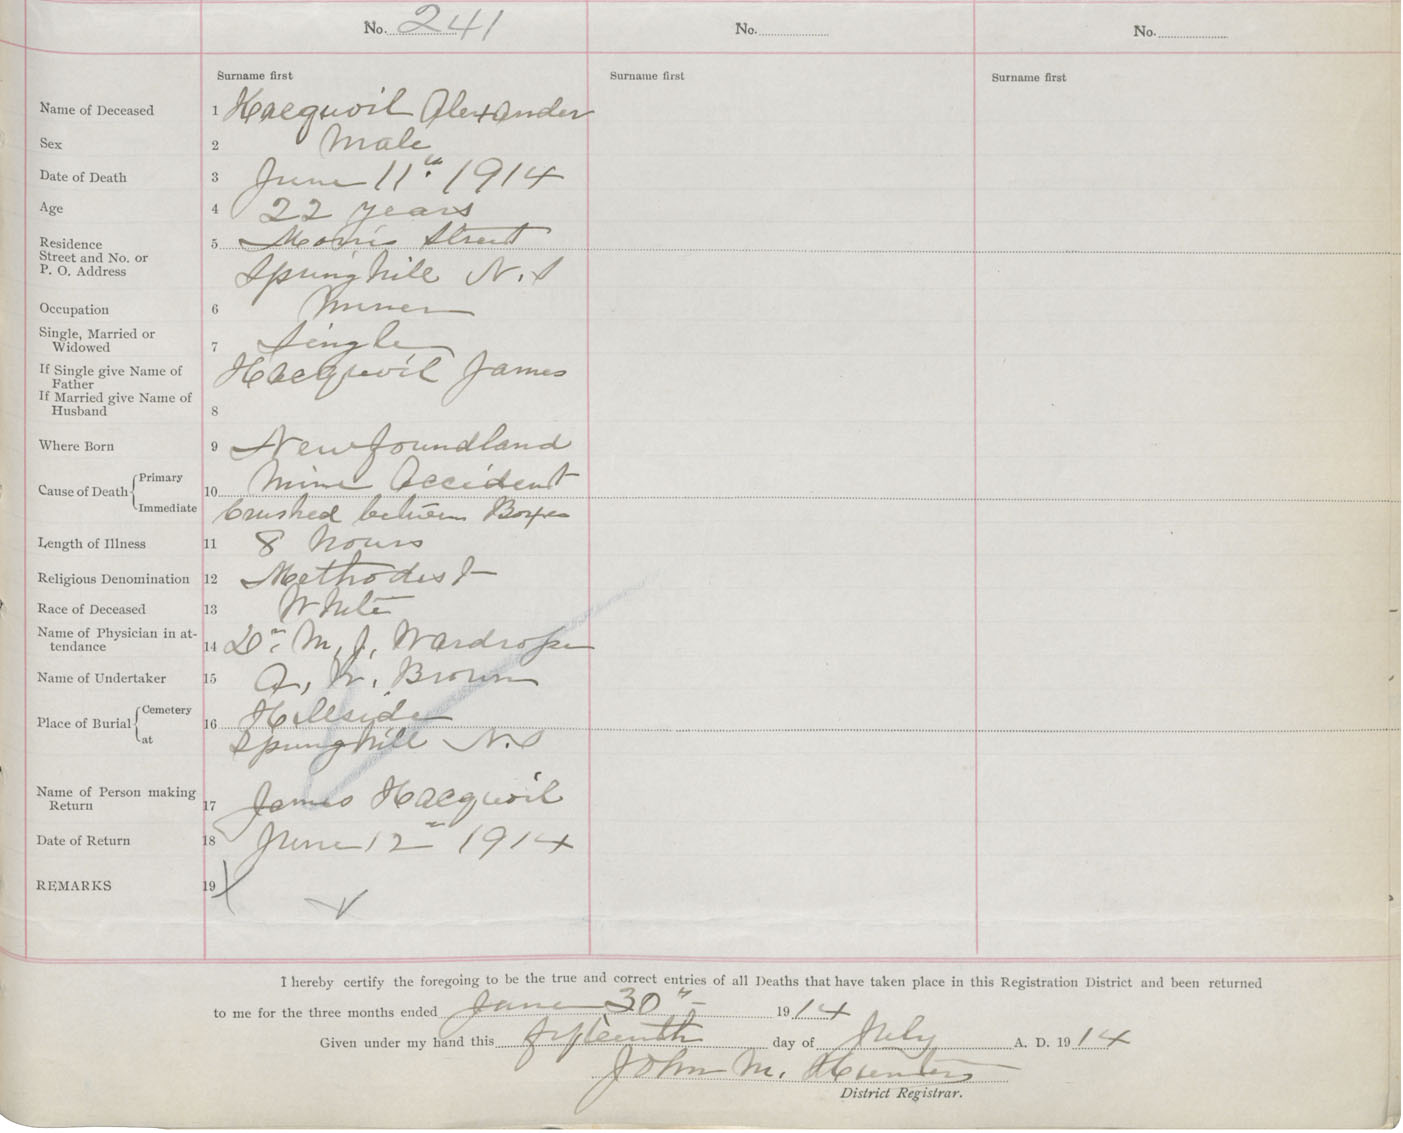 No. 241 No. No.
Surname first Surname first Surname first
Name of Deceased 1 Hacquoil Alexander
Sex 2 Male
Date of Death 3 June 11th 1914
Age 4 22 years
Residence 5 Morris Street
Street and No. or
P. O. Address Springhill N.S
Occupation 6 Miner
Single, Married or
Widowed 7 Single
If Single give Name of
Father Hacquoil James
If Married give Name of
Husband 8
Where Born 9 Newfoundland
Cause of Death Primary 10 Mine Accident
Immediate Crushed between Boxes
Length of Illness 11 8 hours
Religious Denomination 12 Methodist
Race of Deceased 13 White
Name of Physician in at-
tendance 14 Dr. M. J. Wardrope
Name of Undertaker 15 A. W. Brown
Place of Burial Cemetery 16 Hillside
at Springhill N.S
Name of Person making
Return 17 James Hacquoil
Date of Return 18 June 12 1914
REMARKS 19
I hereby certify the foregoing to be the true and correct entries of all Deaths that have taken place in this Registration District and been returned
to me for the three months ended June 30th 1914
Given under my hand this fifteenth day of July A. D. 1914
John M. Hunter
District Registrar.